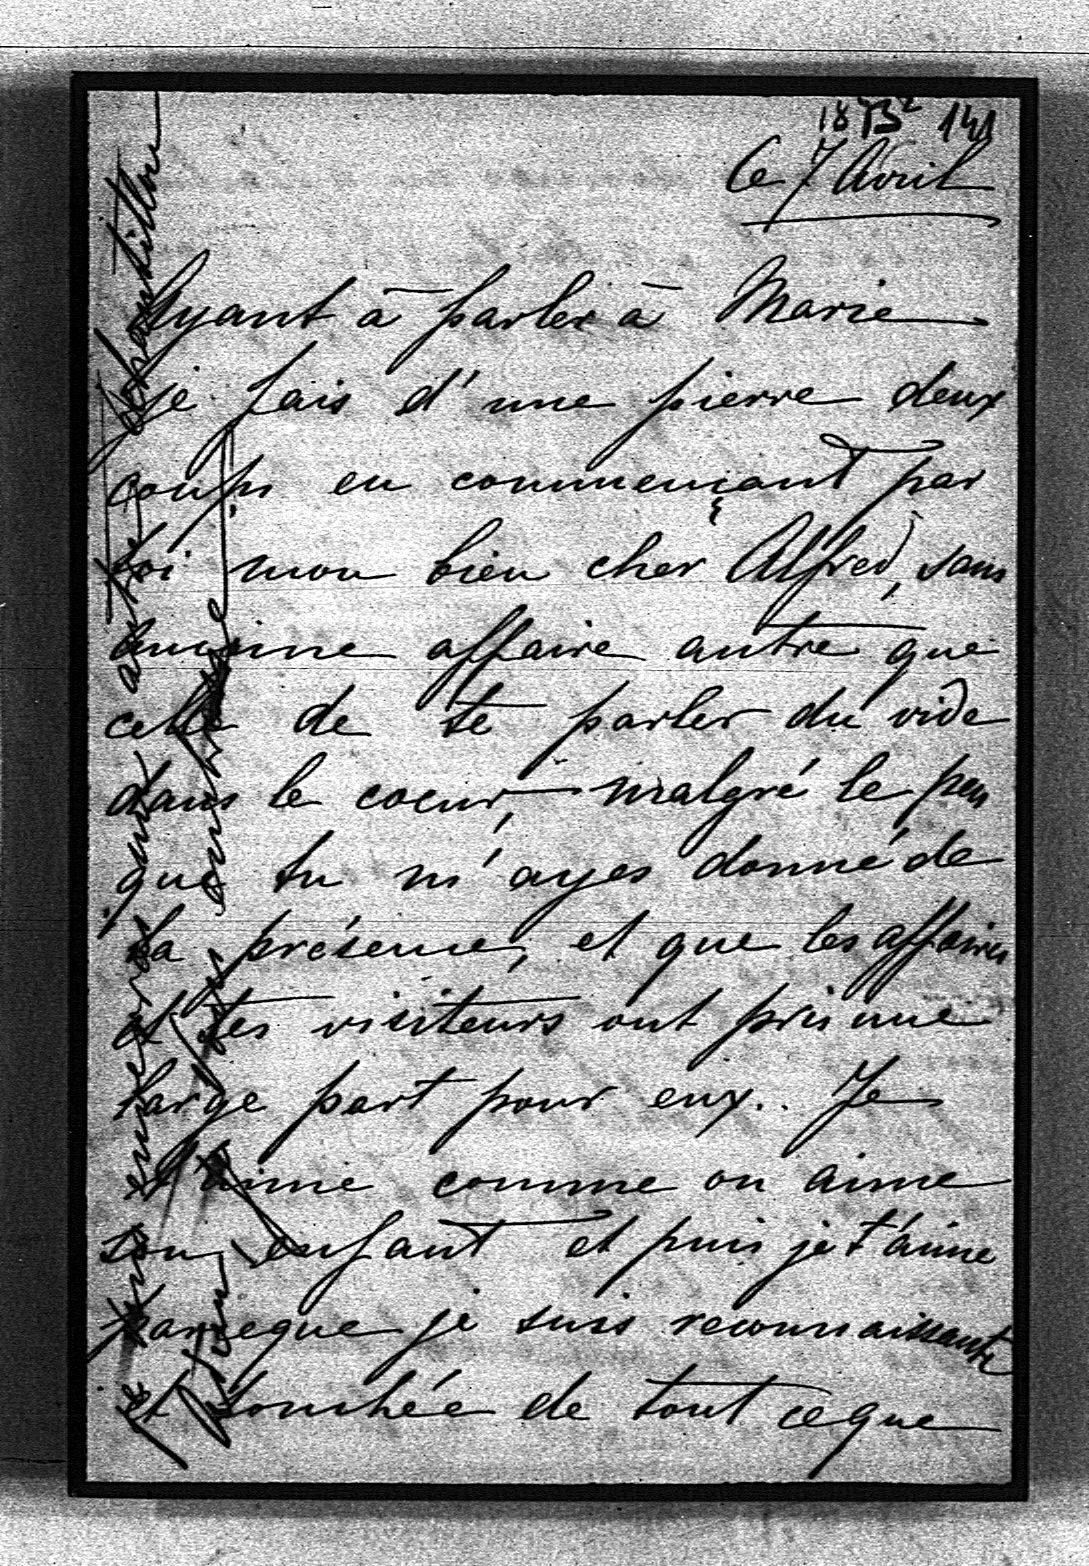 1873² 141
Ce 7 Avril
Ayant à parler à Marie
je fais d'une pierre deux
coups en commençant par
toi mon bien cher Alfred, sans
aucune affaire autre que
celle de te parler du vide
dans le coeur, malgré le peu
que tu m'ayes donné de
ta présence, et que les affaires
et tes visiteurs ont pris une
large part pour eux.. Je
t'aime comme on aime
son enfant et puis je t'aime
parceque je suis reconnaissante
et touchée de tout ceque
échantillon